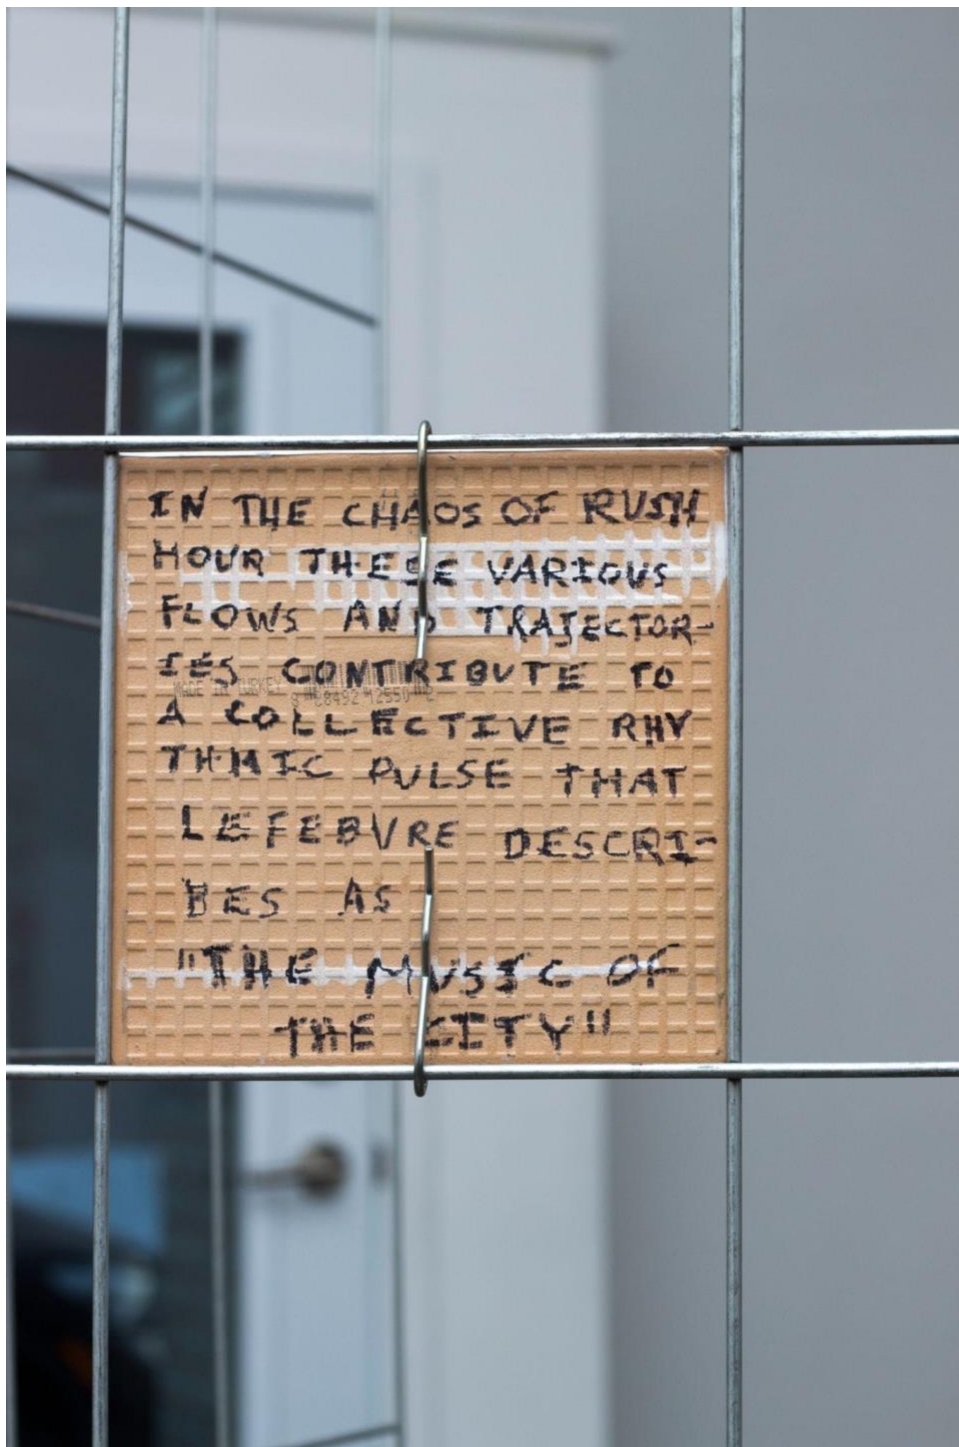 IN THE CHAOS OF RUSH
HOUR THESE VARIOUS
FLOWS AND TRAJECTOR-
IES CONTRIBUTE TO
MADE IN TURKEY
A COLLECTIVE RHY
THMIC PULSE THAT
LEFEBVRE DESCRI-
BES AS
"THE MUSIC OF
THE CITY"